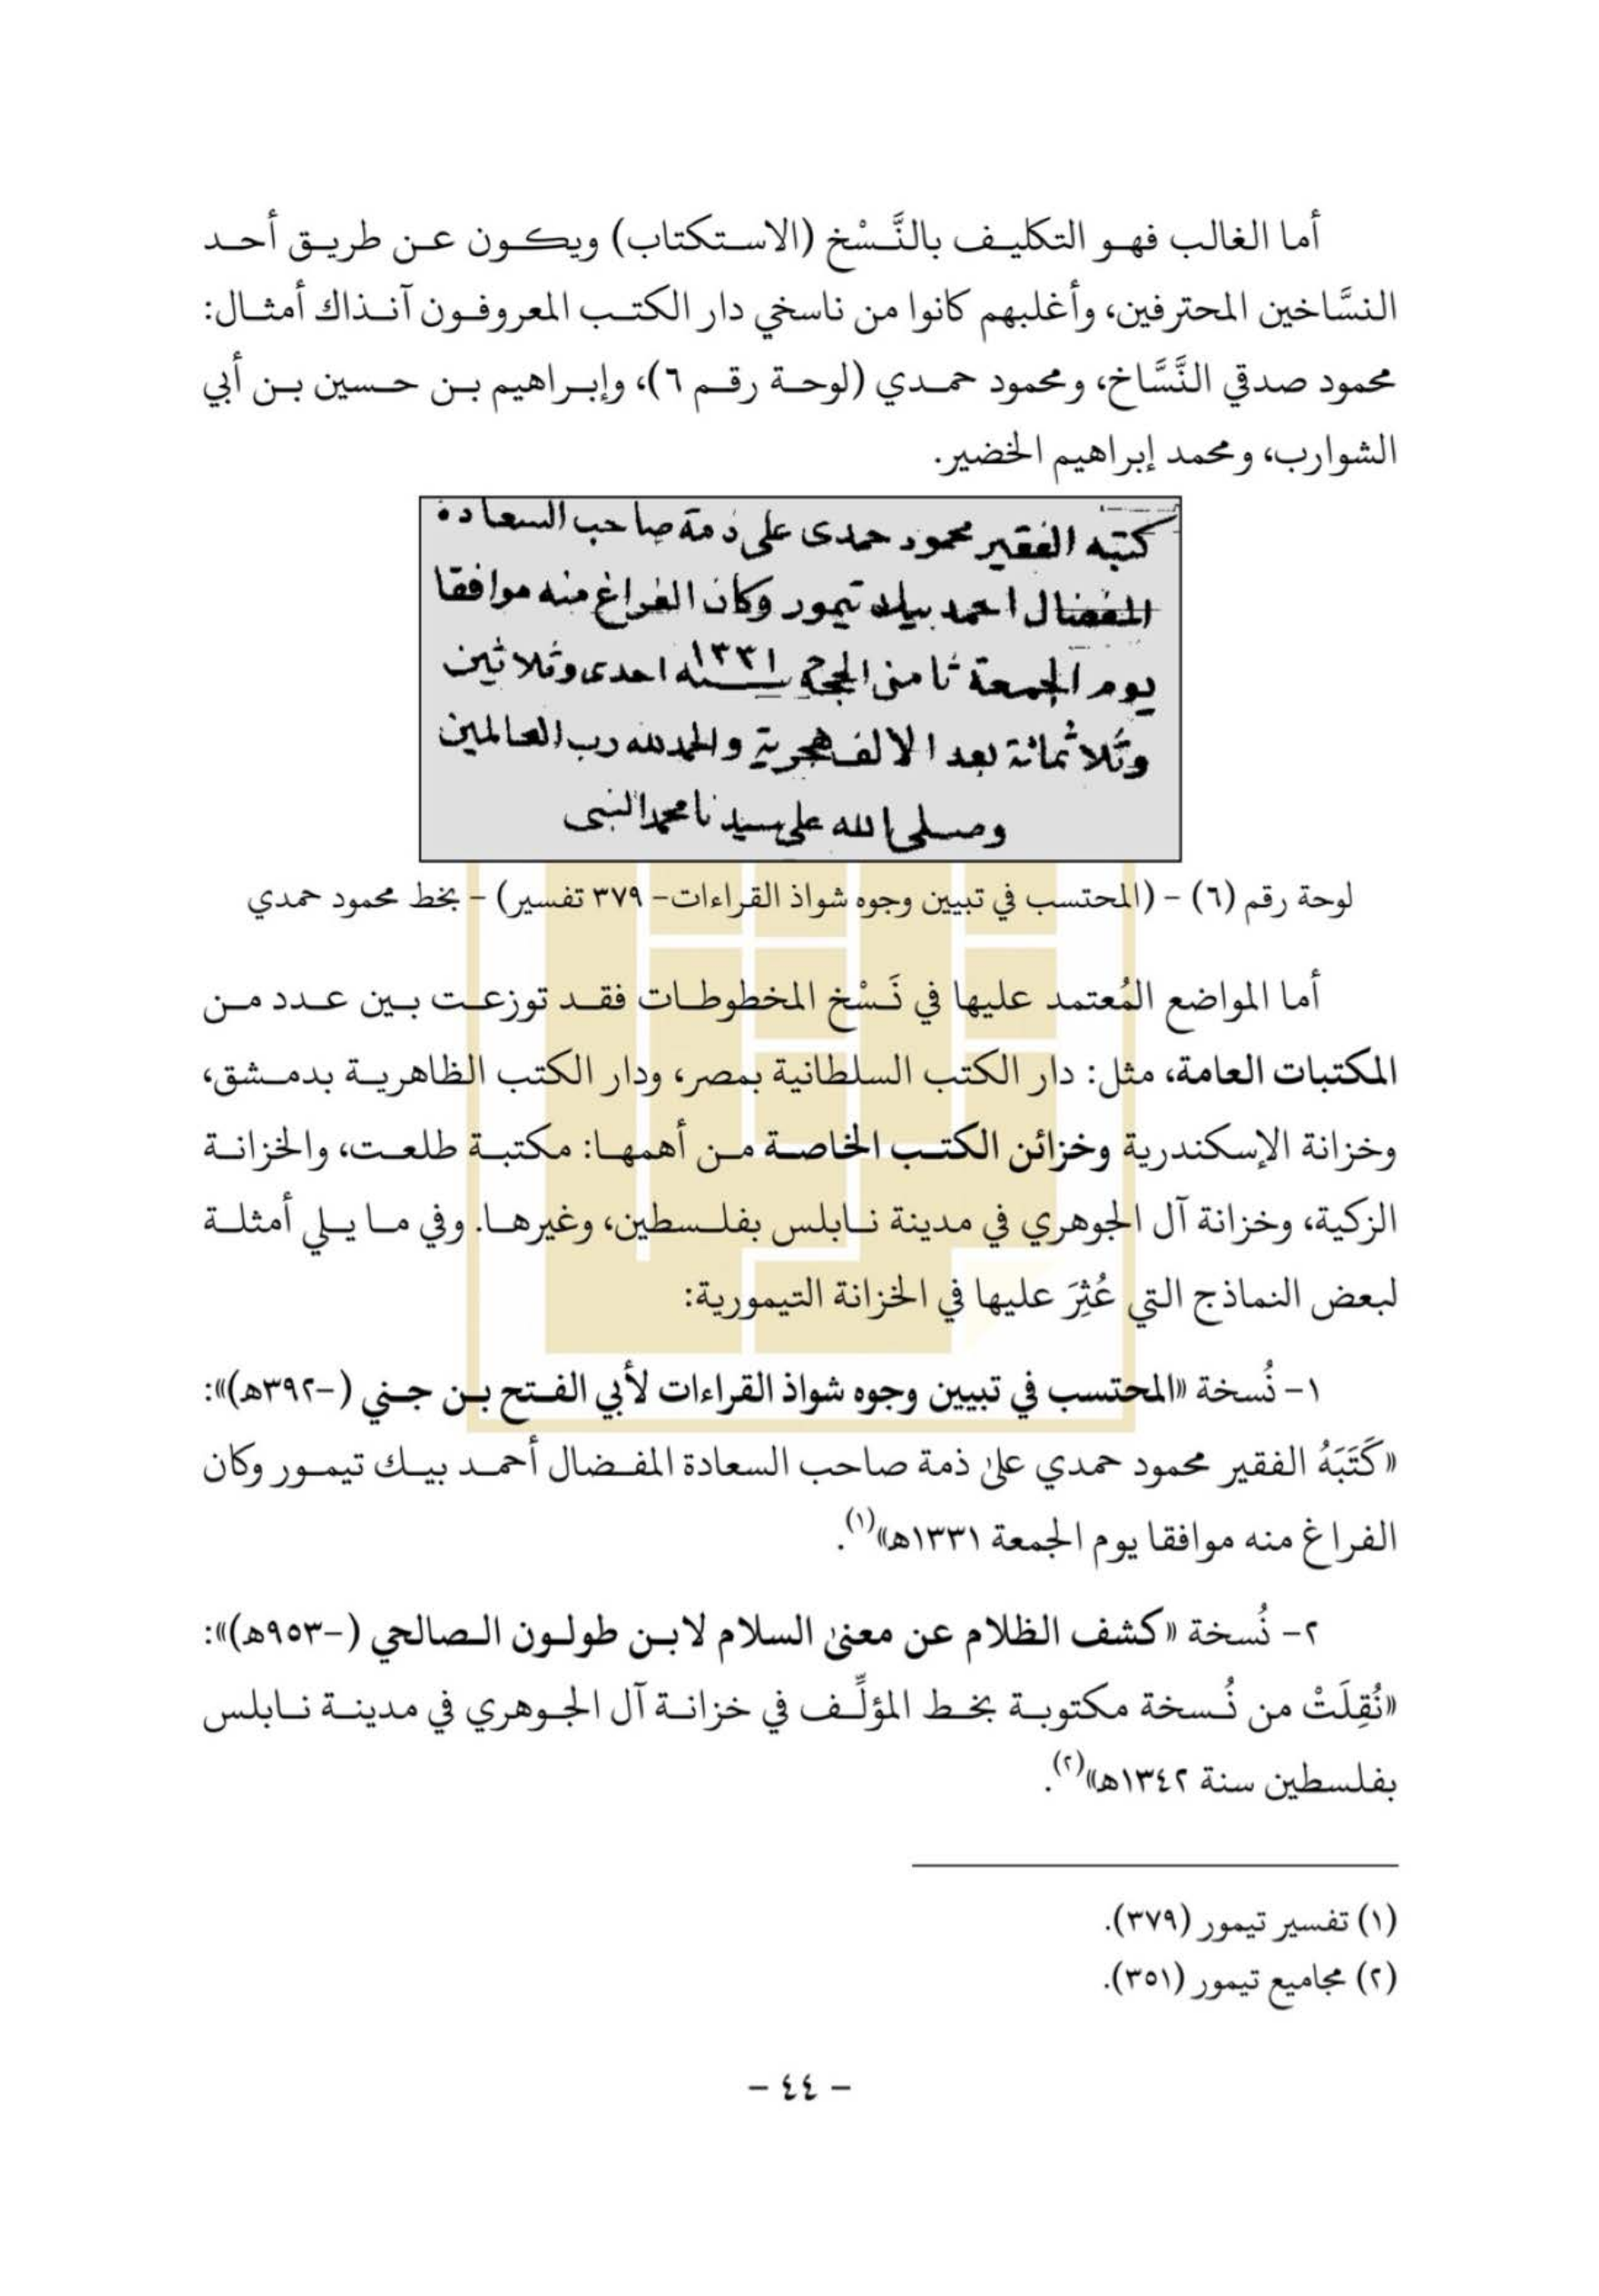 أما الغالب فهو التكليف بالنَّسْخ (الاستكتاب) ويكون عن طريق أحد
النسَّاخين المحترفين، وأغلبهم كانوا من ناسخي دار الكتب المعروفون آنذاك أمثال:
محمود صدقي النَّسَّاخ، ومحمود حمدي (لوحة رقم ٦)، وإبراهيم بن حسين بن أبي
الشوارب، ومحمد إبراهيم الخضير.
كتبه الفقير محمود حمدى على ذمة صاحب السعادة
المفضال احمد بيك تيمور وكان الفراغ منه موافقا
يوم الجمعة ثامن الحجة سنة ١٣٣١ احدى وثلاثين
وثلاثمائة بعد الالف هجرية والحمد لله رب العالمين
وصلى الله على سيدنا محمد النبى
لوحة رقم (٦) – (المحتسب في تبيين وجوه شواذ القراءات– ٣٧٩ تفسير) – بخط محمود حمدي
أما المواضع المُعتمد عليها في نَسْخ المخطوطات فقد توزعت بين عدد من
المكتبات العامة، مثل: دار الكتب السلطانية بمصر، ودار الكتب الظاهرية بدمشق،
وخزانة الإسكندرية وخزائن الكتب الخاصة من أهمها: مكتبة طلعت، والخزانة
الزكية، وخزانة آل الجوهري في مدينة نابلس بفلسطين، وغيرها. وفي ما يلي أمثلة
لبعض النماذج التي عُثِرَ عليها في الخزانة التيمورية:
١– نُسخة «المحتسب في تبيين وجوه شواذ القراءات لأبي الفتح بن جني (–٣٩٢هـ)»:
«كَتَبَهُ الفقير محمود حمدي علىٰ ذمة صاحب السعادة المفضال أحمد بيك تيمور وكان
الفراغ منه موافقا يوم الجمعة ١٣٣١هـ»(١).
٢– نُسخة «كشف الظلام عن معنىٰ السلام لابن طولون الصالحي (–٩٥٣هـ)»:
«نُقِلَتْ من نُسخة مكتوبة بخط المؤلِّف في خزانة آل الجوهري في مدينة نابلس
بفلسطين سنة ١٣٤٢هـ»(٢).
(١) تفسير تيمور (٣٧٩).
(٢) مجاميع تيمور (٣٥١).
– ٤٤ –